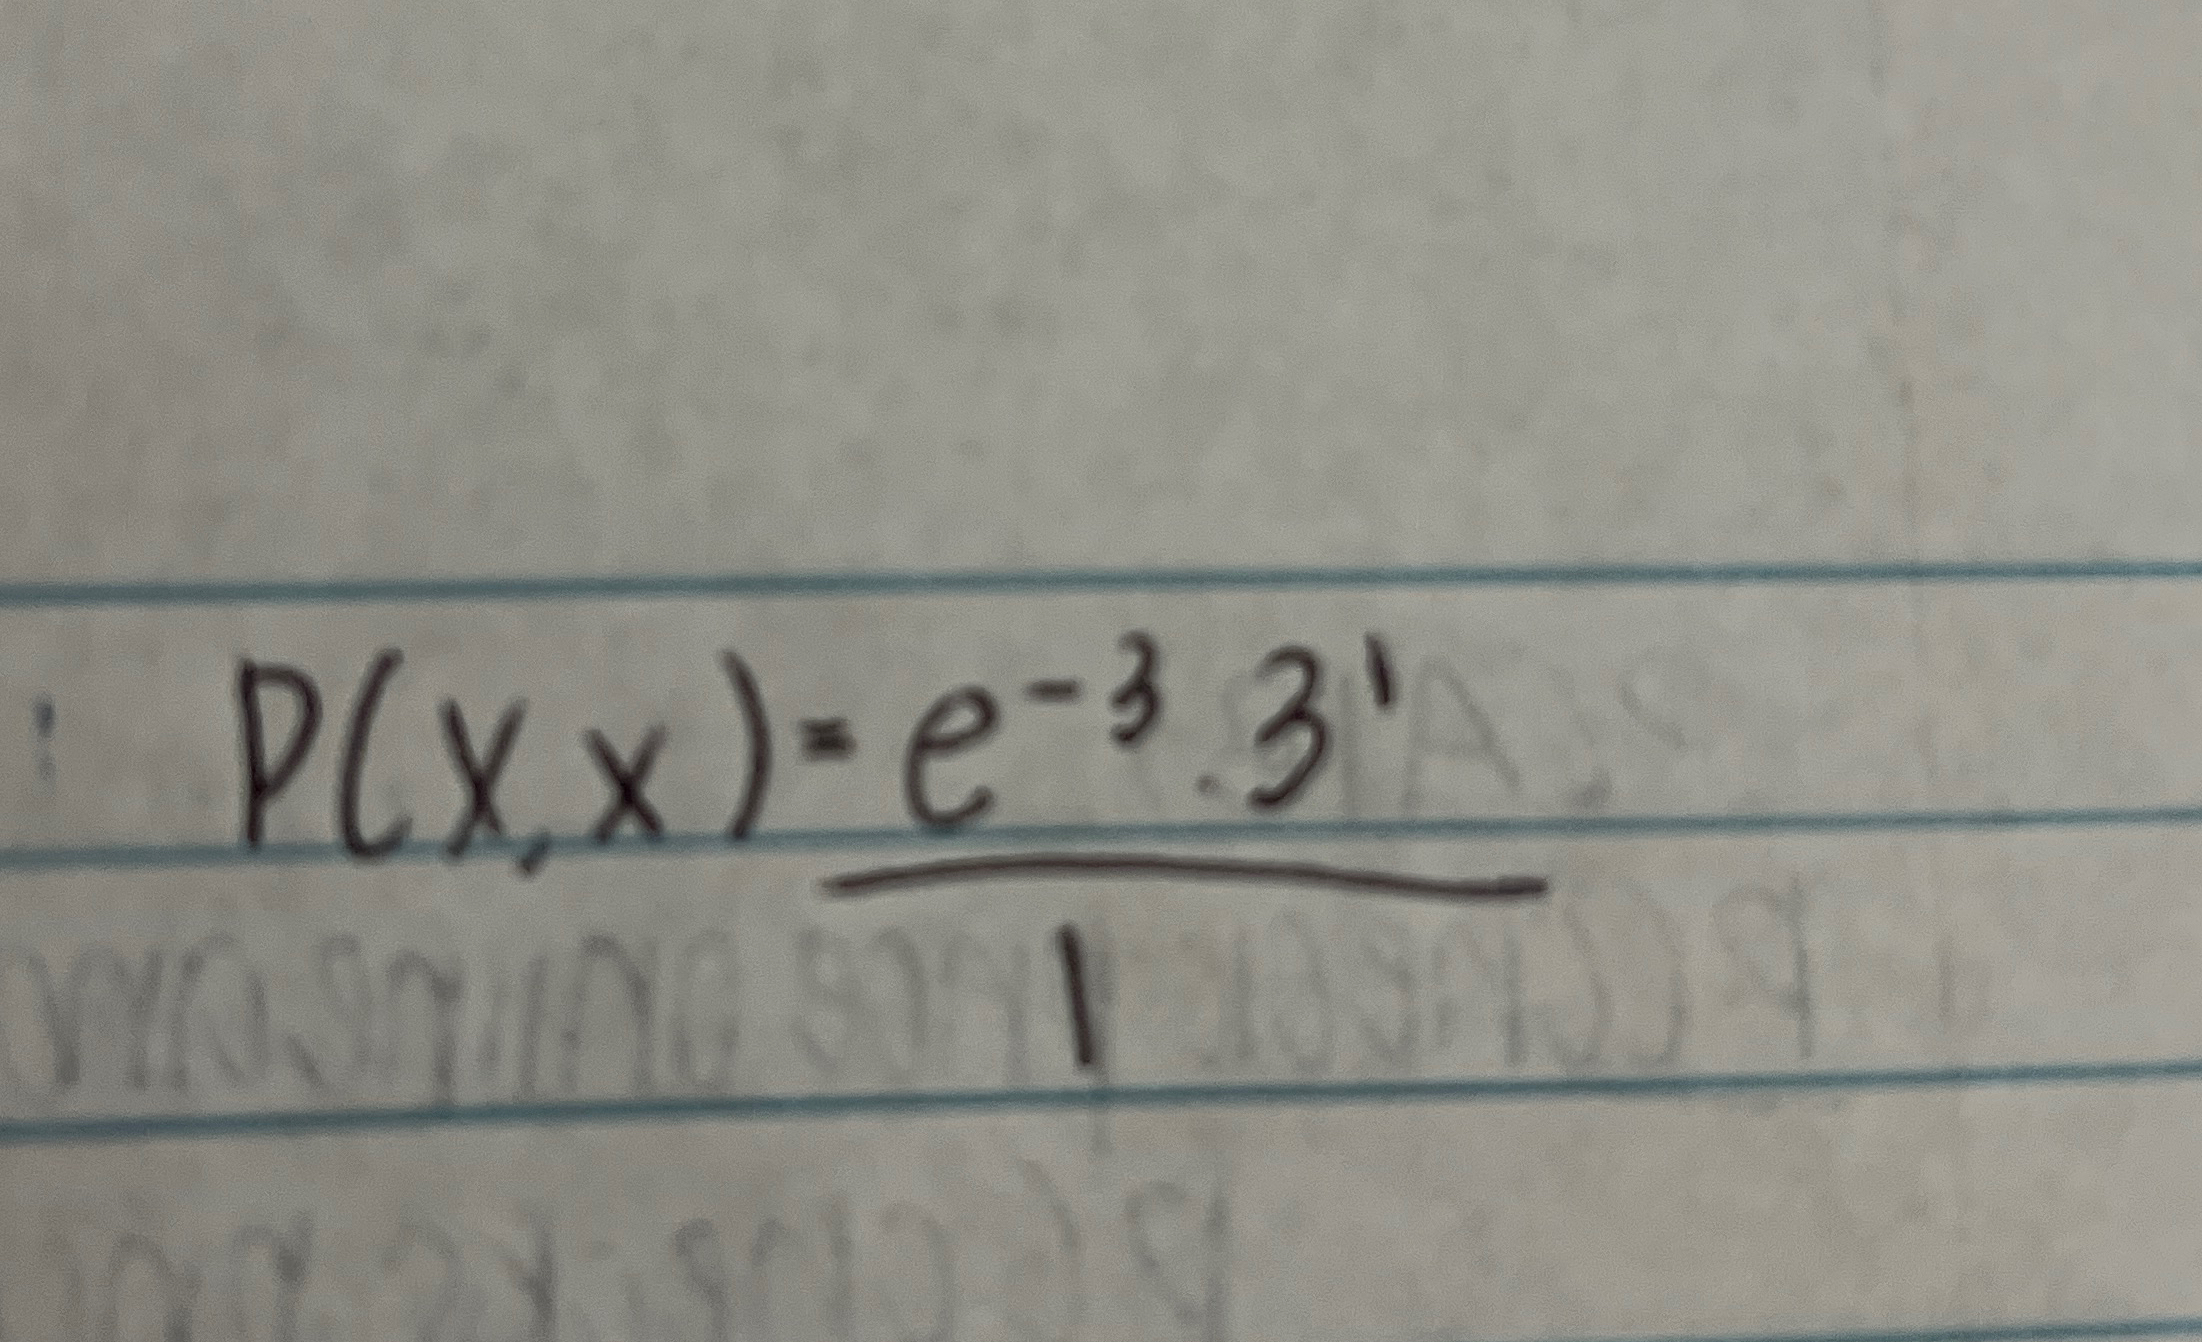 P(x,x) = e⁻³ . 3¹
1